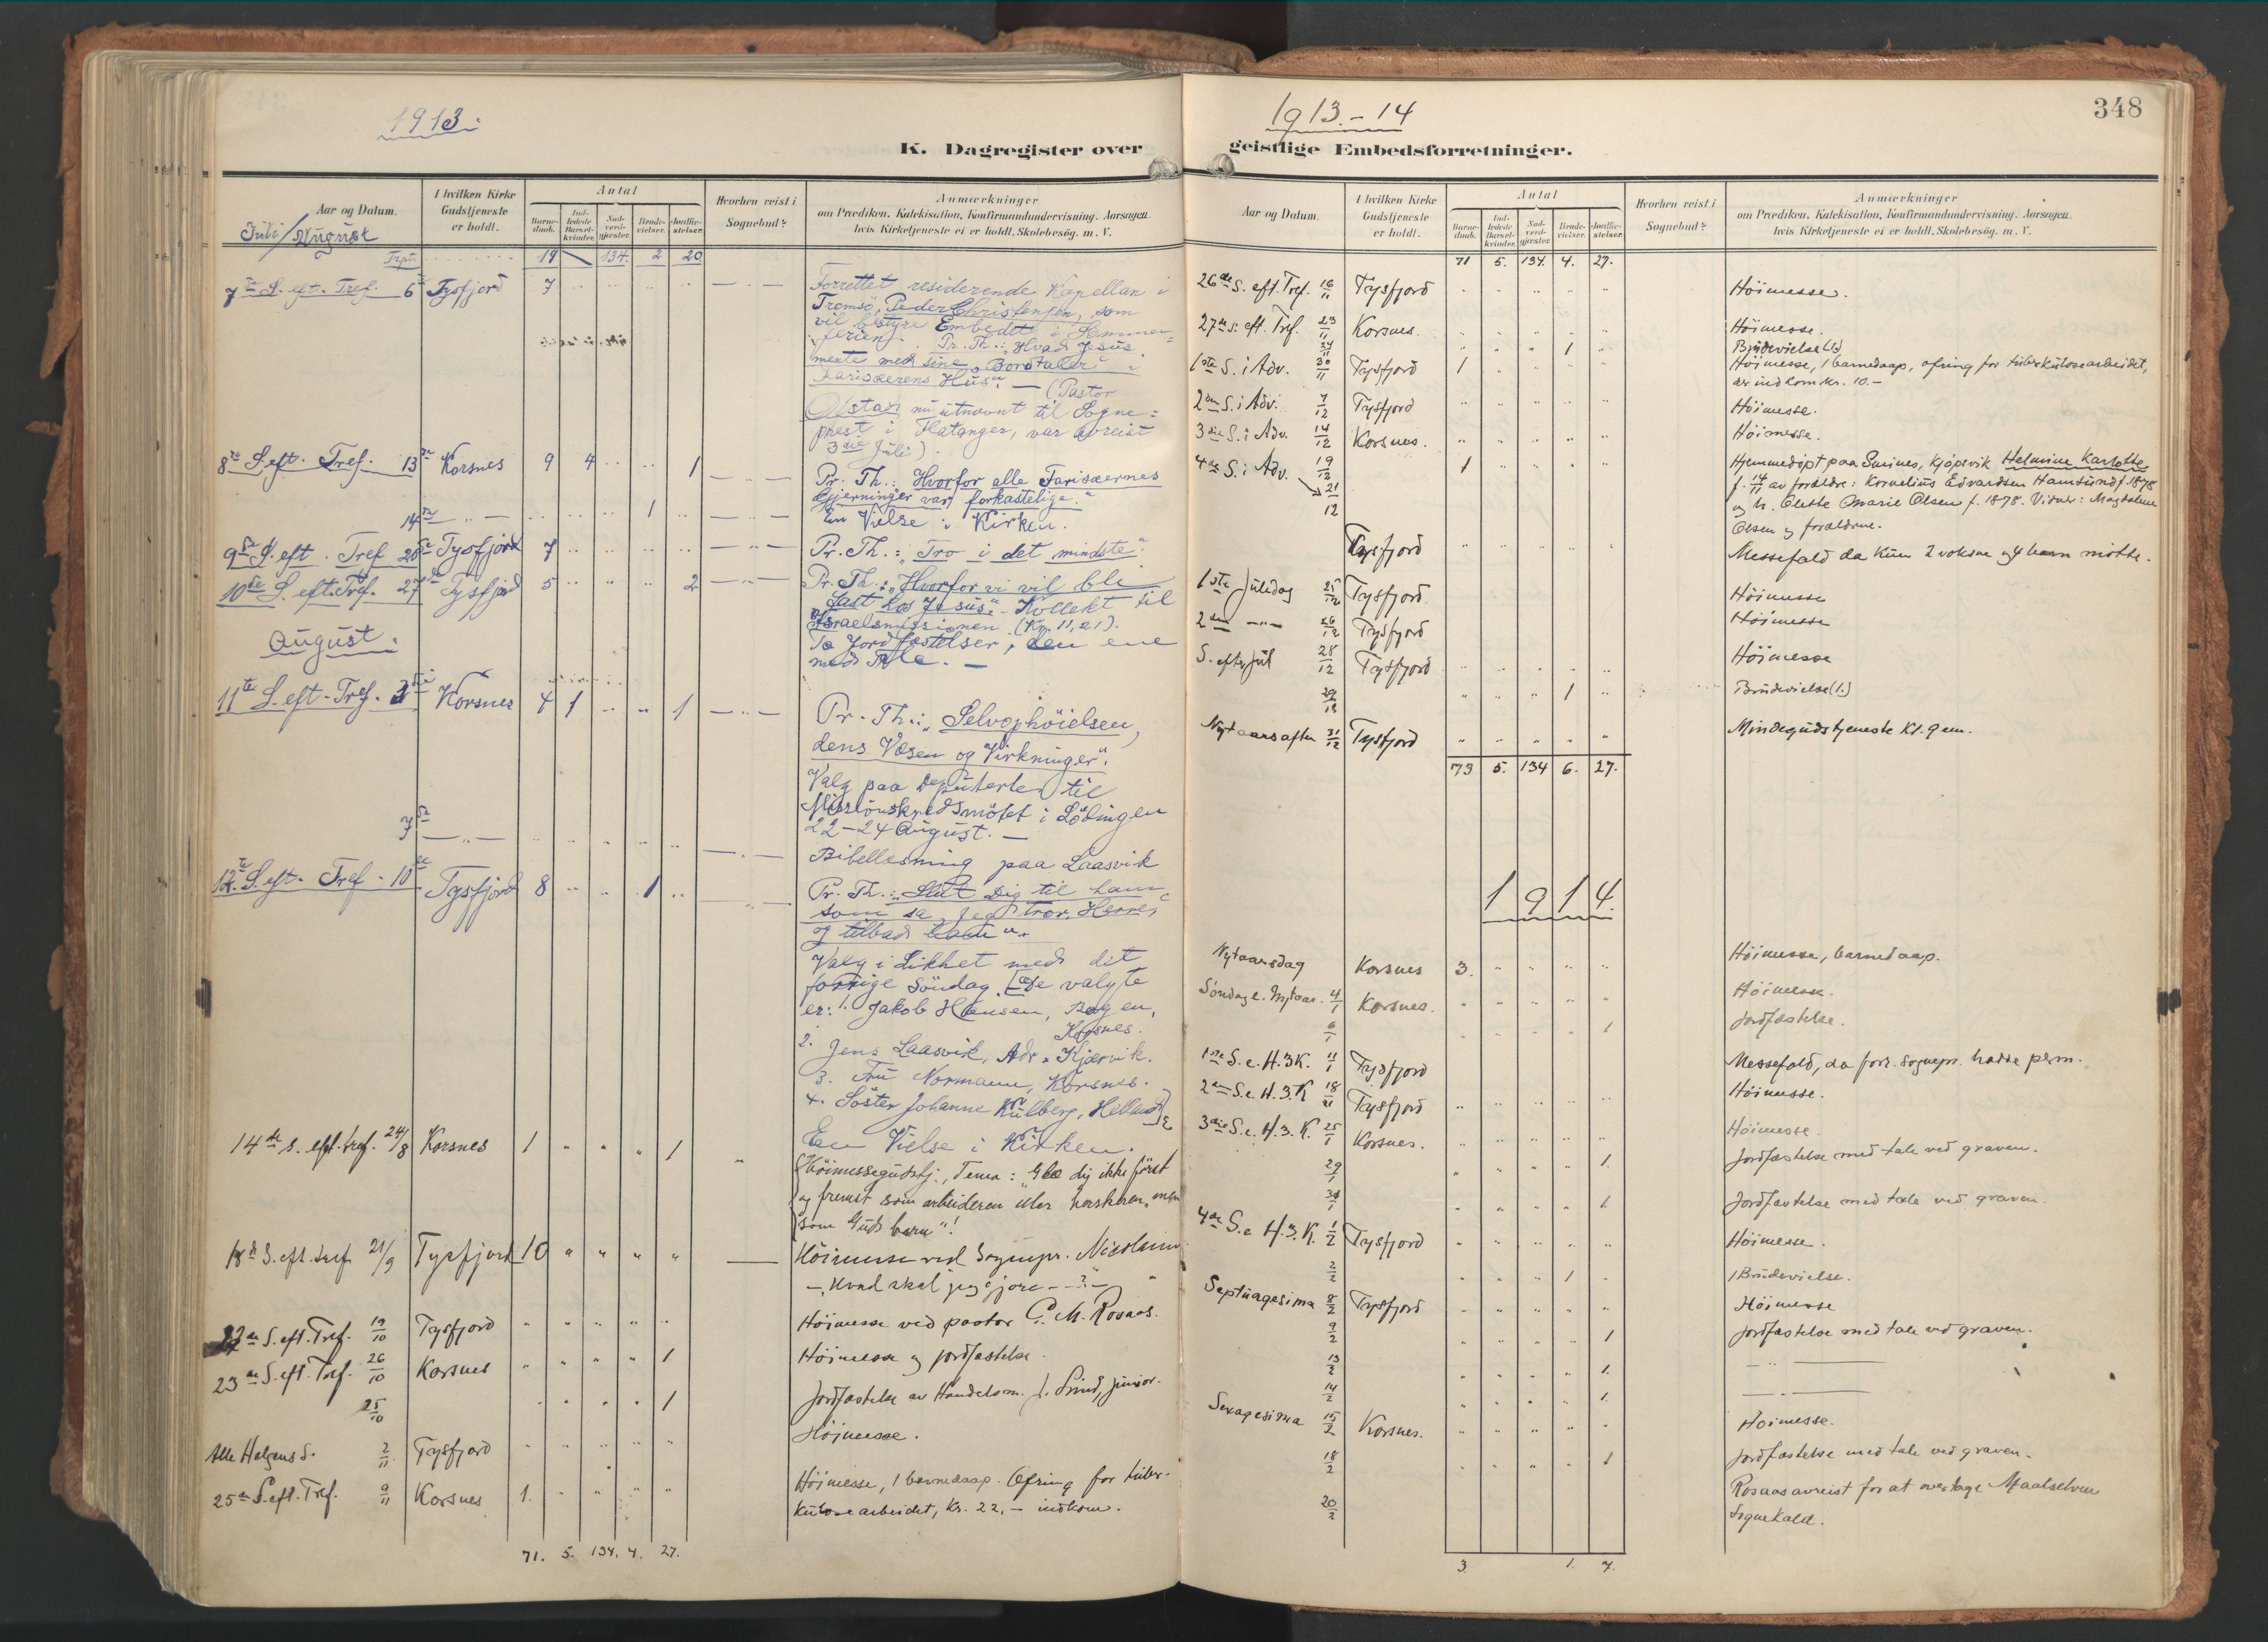 1913.
K. Dagregister over
Aar og Datum.
Juli/August
I hvilken Kirke
Gudstjeneste
er holdt.
Antal
Barne-
daab.
Ind-
ledede
Barsel-
kvinder.
Nad-
verd-
gjæster.
Brude-
vielser.
Jordfæ-
stelser.
Hvorhen reist i
Sognebud?
Anmærkninger
om Prædiken. Katekisation, Konfirmandundervisning. Aarsagen,
hvis Kirketjeneste ei er holdt. Skolebesög. m. V.
Trpt. 19 134. 2 20
7de S. eft. Tref. 6te Tysfjord 7 Forrettet residerende Kapellan i
Tromsö, Peder Christensen, som
vil bestyre Embedet i Sommer-
ferien. Pr. Th.: „Hvad Jesus
mente med sine „Bordtaler“ i
Farisæerens Hus“. — (Pastor
Alstad, nu utnævnt til Sogne=
prest i Flatanger, var avreist
3die Juli).
8de S. eft. Tref. 13de Korsnes 9 4 1 Pr. Th.: Hvorfor alle Farisæernes
Gjerninger var forkastelige.“
14de — „ — 1 En Vielse i Kirken.
9de S. eft. Tref 20de Tysfjord 7 Pr. Th.: „Tro i det mindste“.
10de S. eft. Tref. 27de Tysfjord 5 2 Pr. Th.: „Hvorfor vi vil bli
fast hos Jesus“. Kollekt til
Israelsmissionen (Kr. 11,21).
To Jordfæstelser, den ene
med Tale. —
August.
11te S. eft. Tref. 3die Korsnes 4 1 1 Pr. Th.: „Selvophöielsen,
dens Væsen og Virkninger“.
Valg paa Deputerte til
Missionskredsmötet i Lödingen
22–24 August. —
7de — „ — Bibellæsning paa Laasvik
12te S. eft. Tref. 10de Tysfjord 8 1 Pr. Th.: „Slut Dig til ham
som sa „Jeg tror, Herre,“
og tilbad ham“.
Valg i Likhet med det
forrige Söndag. [De valgte
er: 1. Jakob Hansen, Bogen,
Korsnes.
2. Jens Laasvik, Adr. Kjærvik.
3. Fru Normann, Korsnes.
4. Söster Johanne Kulberg, Helland]
En Vielse i Kirken.
14de s. eft. tref. 24/8 Korsnes 1 1 Höimessegudstj., Tema: Glæ dig ikke först
og fremst som arbeideren eller herskeren, men
som Guds barn“!
18de S. eft. tref 21/9 Tysfjord 10 Höimesse ved Sognepr. Nicolaisen
—„Hvad skal jeg gjöre — ?“ —
22de S. eft. Tref. 19/10 Tysfjord Höimesse ved pastor C. M. Rosaas.
23de S. eft. Tref. 26/10 Korsnes 1 Höimesse og jordfæstelse.
25/10 1 Jordfæstelse av Handelsm. J. Lind, junior.
Alle Helgens S. 2/11 Tysfjord Höimesse.
25de S. eft. Tref. 9/11 Korsnes 1. Höimesse, 1 barnedaap. Ofring for tuber-
kulosearbeidet, Kr. 22.– indkom.
71. 5. 134. 4. 27.
1913.–14
348
geistlige Embedsforretninger.
Aar og Datum.
I hvilken Kirke
Gudstjeneste
er holdt.
Antal
Barne-
daab.
Ind-
ledede
Barsel-
kvinder.
Nad-
verd-
gjæster.
Brude-
vielser.
Jordfæ-
stelser.
Hvorhen reist i
Sognebud?
Anmærkninger
om Prædiken. Katekisation, Konfirmandundervisning. Aarsagen,
hvis Kirketjeneste ei er holdt. Skolebesög. m. V.
71 5. 134. 4. 27.
26de S. eft. Tref. 16/11 Tysfjord Höimesse.
27de S. eft. Tref. 23/11 Korsnes. Höimesse.
24/11 1 Brudevielse (1)
1ste S. i Adv. 30/11 Tysfjord 1 Höimesse, 1 barnedaap, ofring for tuberkulosearbeidet,
der indkom kr. 10.–
2den S. i Adv. 7/12 Tysfjord Höimesse.
3die S. i Adv. 14/12 Korsnes. Höimesse.
4de S. i Adv. 19/12 1 Hjemmedöpt paa Smines, Kjöpsvik Helmine Karlotte
f. 14/11 av forældre: Kornelius Edvardsen Hamsund f. 1878
og h. Olette Marie Olsen f. 1878. Vidner: Magdalene
Olsen og forældrene.
21/12 Tysfjord Messefald da kun 2 voksne og 4 barn mötte.
1ste Juledag 25/12 Tysfjord Höimesse
2den —„— 26/12 Tysfjord Höimesse
S. efter jul 28/12 Tysfjord Höimesse
29/12 1 Brudevielse (1.)
Nytaarsaften 31/12 Tysfjord Mindegudstjeneste Kl. 9 em.
73 5. 134 6. 27.
1914.
Nytaarsdag Korsnes 3. Höimesse, barnedaap.
Söndag e. Nytaar. 4/1 Korsnes. Höimesse.
6/1 1 Jordfæstelse.
1ste S. e. H.3K. 11/1 Tysfjord Messefald, da forr. sognepr. hadde perm.
2den S. e. H.3.K 18/1 Tysfjord Höimesse.
3die S. e. H.3.K. 25/1 Korsnes. Höimesse.
29/1 1. Jordfæstelse med tale ved graven.
31/1 1 Jordfæstelse med tale ved graven.
4de S. e H.3.K. 1/2 Tysfjord Höimesse.
2/2 1 1 Brudevielse.
Septuagesima 8/2 Tysfjord Höimesse
9/2 1 Jordfæstelse med tale ved graven.
13/2 1. — „ —
14/2 1. — „ —
Sexagesima 15/2 Korsnes. Höimesse.
18/2 1 Jordfæstelse med tale ved graven.
20/2 Rosaas avreist for at overtage Maalselven
Sognekald.
3. 1. 7.